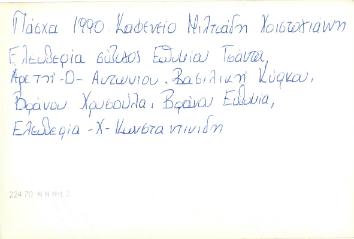 Πάσχα 1990 Καφενείο Μιλτιάδη Χριστογιάννη
Ελευθερία σύζυγος Ευθυμίου Τσάντα,
Αρετή -Θ- Αντωνίου. Βασιλική Κύρκου,
Βράνου Χρυσούλα, Βράνου Ευθυμία,
Ελευθερία -Χ- Κωνσταντινίδη